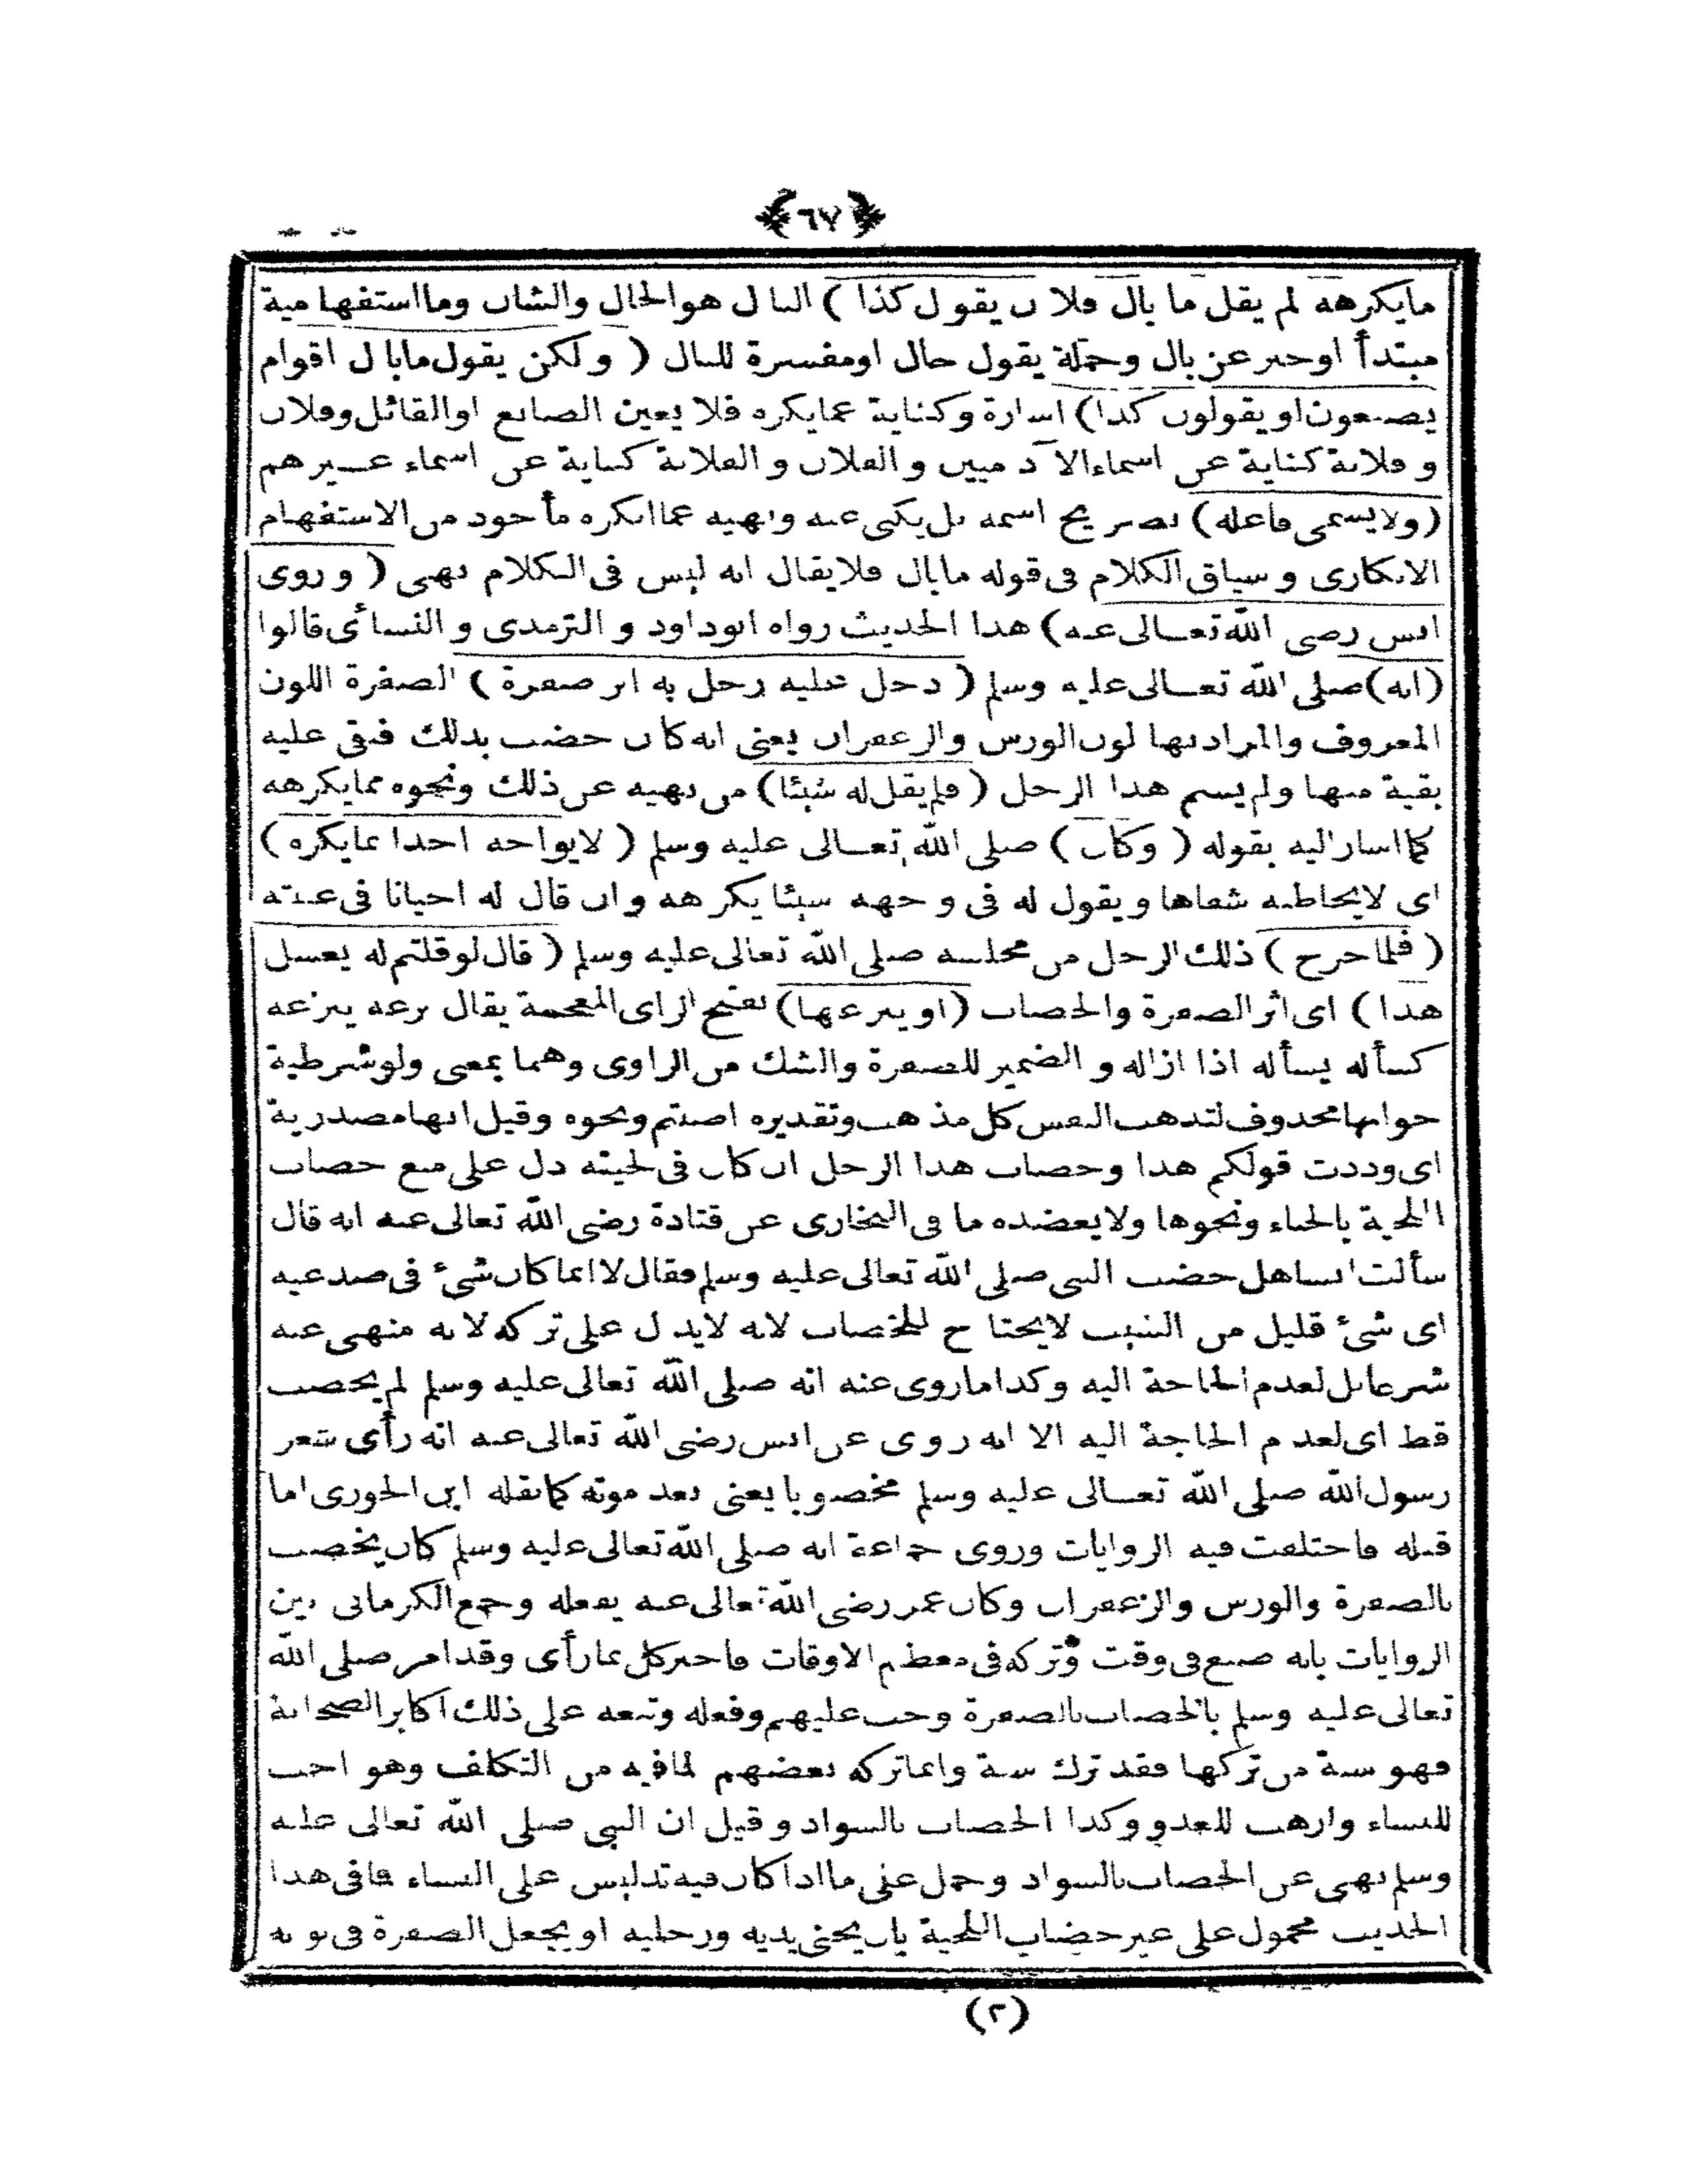 ﴿٦٧﴾
مايكرهه لم يقل ما بال فلان يقول كذا ) البال هو الحال والشان وما استفهامية
مبتدأ اوخبر عن بال وجملة يقول حال اومفسرة للبال ( ولكن يقول مابال اقوام
يصنعون او يقولون كذا) اشارة وكناية عمايكره فلا يعين الصانع اوالقائل وفلان
و فلانة كناية عن اسماء الآدميين و الفلان و الفلانة كناية عن اسماء غيرهم
(ولايسمى فاعله) تصريح اسمه بل يكنى عنه ونهيه عما انكره مأخوذ من الاستفهام
الانكارى و سياق الكلام فى قوله مابال فلا يقال انه ليس فى الكلام نهى ( وروى
انس رضى الله تعالى عنه) هذا الحديث رواه ابوداود و الترمذى و النسائى قالوا
(انه) صلى الله تعالى عليه وسلم ( دخل عليه رجل به اثر صفرة ) الصفرة اللون
المعروف والمراد بها لون الورس والزعفران يعنى انه كان خضب بذلك فبقى عليه
بقية منها ولم يسم هذا الرجل ( فلم يقل له شيئا) من نهيه عن ذلك ونحوه ممايكرهه
كما اشار اليه بقوله ( وكان ) صلى الله تعالى عليه وسلم ( لايواجه احدا بمايكره )
اى لايخاطبه شفاها ويقول له فى وجهه شيئا يكرهه وان قال له احيانا فى غيبته
( فلما خرج ) ذلك الرجل من مجلسه صلى الله تعالى عليه وسلم ( قال لوقلتم له يغسل
هذا ) اى اثر الصفرة والخضاب (او ينزعها) بفتح الزاى المعجمة يقال نزعه ينزعه
كسأله يسأله اذا ازاله و الضمير للصفرة والشك من الراوى وهما بمعنى ولوشرطية
جوابها محذوف لتذهب النفس كل مذهب وتقديره اصبتم ونحوه وقيل انها مصدرية
اى وددت قولكم هذا وخضاب هذا الرجل ان كان فى لحيته دل على منع خضاب
اللحية بالحناء ونحوها ولايعضده ما فى البخارى عن قتادة رضى الله تعالى عنه انه قال
سألت انسا هل خضب النبى صلى الله تعالى عليه وسلم فقال لا انما كان شىء فى صدغيه
اى شىء قليل من الشيب لايحتاج للخضاب لانه لايدل على تركه لانه منهى عنه
شرعا بل لعدم الحاجة اليه وكذا ماروى عنه انه صلى الله تعالى عليه وسلم لم يخضب
قط اى لعدم الحاجة اليه الا انه روى عن انس رضى الله تعالى عنه انه رأى شعر
رسول الله صلى الله تعالى عليه وسلم مخضوبا يعنى بعد موته كما نقله ابن الجوزى اما
قبله فاختلفت فيه الروايات وروى جماعة انه صلى الله تعالى عليه وسلم كان يخضب
بالصفرة والورس والزعفران وكان عمر رضى الله تعالى عنه يفعله وجمع الكرمانى بين
الروايات بانه صبغ فى وقت وتركه فى معظم الاوقات فاخبر كل بمارأى وقد امر صلى الله
تعالى عليه وسلم بالخضاب بالصفرة وحث عليهم وفعله وتبعه على ذلك اكابر الصحابة
فهو سنة من تركها فقد ترك سنة وانماتركه بعضهم لمافيه من التكلف وهو احب
للنساء وارهب للعدو وكذا الخضاب بالسواد وقيل ان النبى صلى الله تعالى عليه
وسلم نهى عن الخضاب بالسواد وحمل على ما اذا كان فيه تدليس على النساء فما فى هذا
الحديث محمول على غير خضاب اللحية بان يحنى يديه ورجليه او يجعل الصفرة فى ثوبه
(٢)